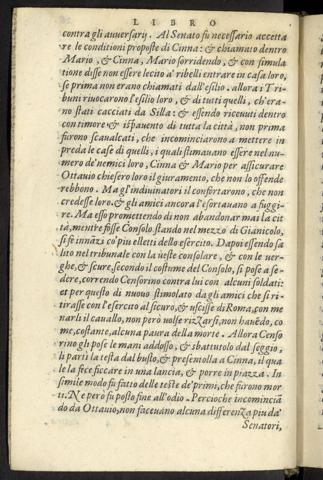 LIBRO
contra gli auuersarij. Al Senato fu necessario accetta
re le conditioni proposte di Cinna: & chiamato dentro
Mario, & Cinna, Mario sorridendo, & con simula
tione disse non essere lecito a' ribelli entrare in casa loro,
se prima non erano chiamati dall'esilio. allora i Tri
buni riuocarono l'esilio loro, & di tutti quelli, ch'era-
no stati cacciati da Silla: & essendo riceuuti dentro
con timore & ispauento di tutta la città, non prima
furono scaualcati, che incominciarono a mettere in
preda le case di quelli, i quali stimauano essere nel nu-
mero de' nemici loro, Cinna & Mario per assicurare
Ottauio chiesero loro il giuramento, che non lo offende
rebbono. Ma gl'indiuinatori il confortarono, che non
credesse loro. & gli amici ancora l'esortauano a fuggi-
re. Ma esso promettendo di non abandonar mai la cit
tà, mentre fosse Consolo, stando nel mezzo di Gianicolo,
si fe innāzi co' piu elletti dello esercito. Dapoi essendo sa
lito nel tribunale con la ueste consolare, & con le ver-
ghe, & scure, secondo il costume del Consolo, si pose a se-
dere, correndo Censorino contra lui con alcuni soldati:
et per questo di nuouo stimolato da gli amici che si ri-
tirasse con l'esercito al sicuro, & uscisse di Roma, con me
narli il cauallo, non però uolse rizzarsi, non hauēdo, co
me, costante, alcuna paura della morte. Allora Censo
rino gli pose le mani addosso, & sbattutolo dal seggio,
li partì la testa dal busto, & presentolla a Cinna, il qua
le la fece ficcare in una lancia, & porre in piazza. In
simile modo fu fatto delle teste de' primi, che furono mor
ti. Ne però fu posto fine all'odio. Percioche incomincià
do da Ottauio, non faceuano alcuna differenza piu da'
Senatori,